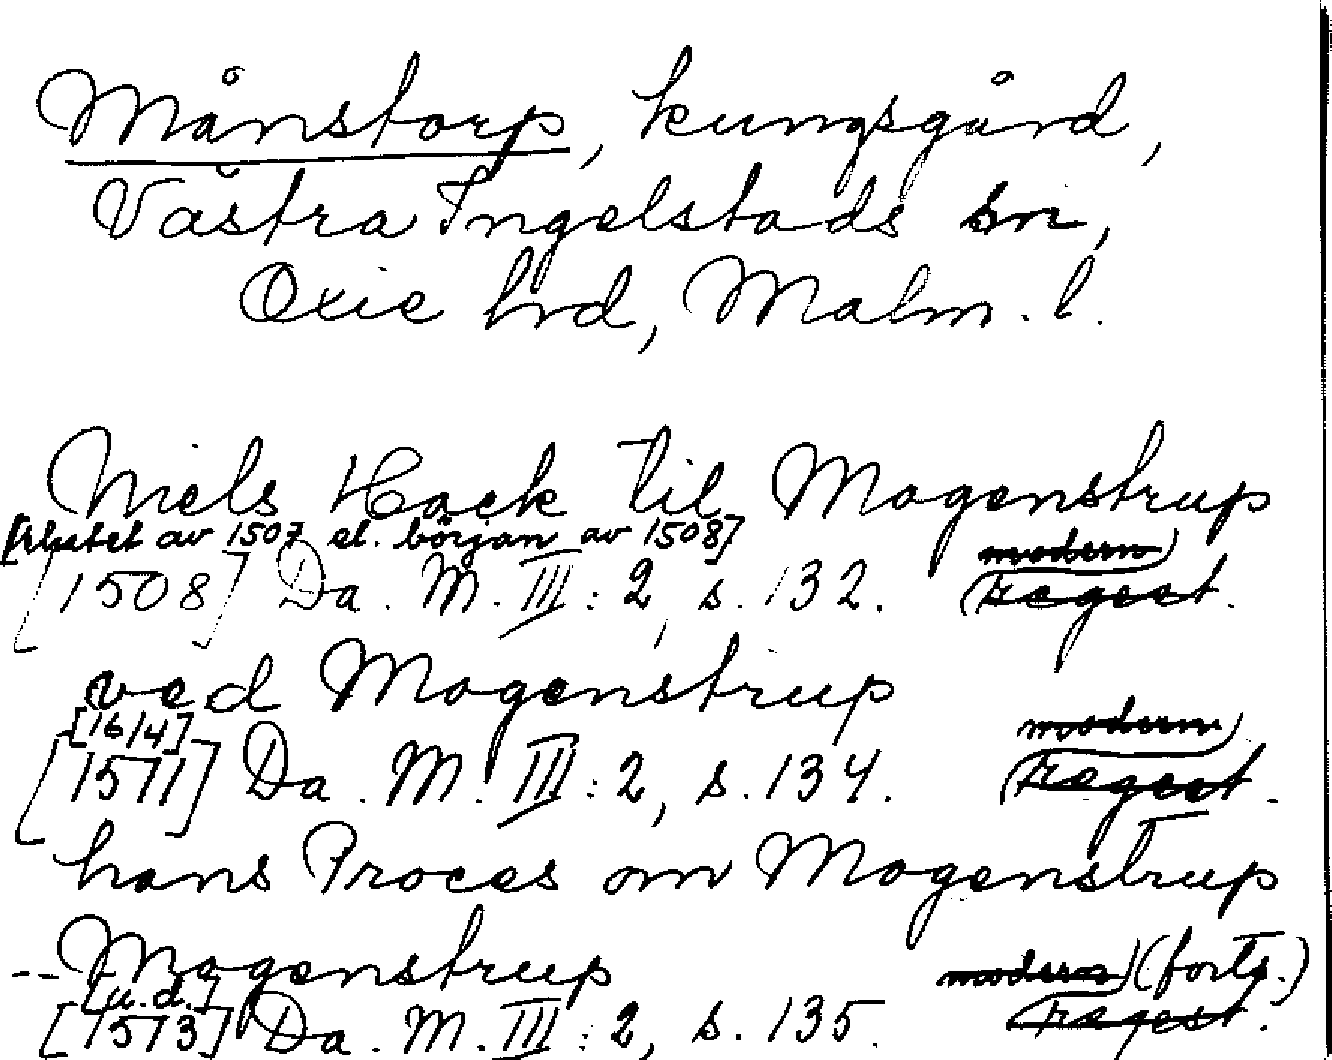 Månstorp, kungsgård,
Västra Ingelstads sn,
Oxie hrd, Malm. l.
Niels Hack til Mogenstrup
[slutet av 1507 el. början av 1508]
modern)
[1508] Da. M. III:2, s. 132. (regest.
ved Mogenstrup
[16/4]
modern)
[1511] Da. M. III:2, s. 134. (regest.
hans Proces om Mogenstrup
-- Mogenstrup modern) (forts.)
[u.d.]
[1513] Da. M. III:2, s. 135. (regest.